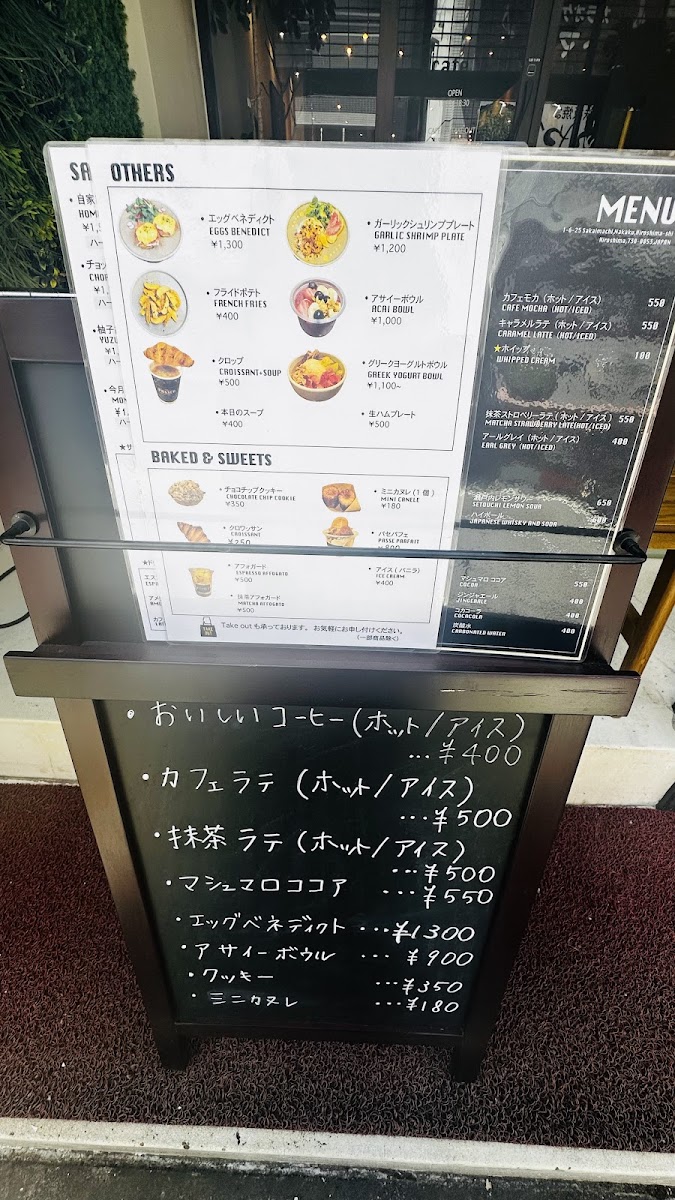 OPEN
SA
自家
HOM
¥1,
ハー
・チョッ
CHOP
¥1,
ハー
・柚子
YUZU
¥1,
・今月
MON
¥1,
OTHERS
・エッグベネディクト
EGGS BENEDICT
¥1,300
・ガーリックシュリンププレート
GARLIC SHRIMP PLATE
¥1,200
・フライドポテト
FRENCH FRIES
¥400
・アサイーボウル
ACAI BOWL
¥1,000
・クロップ
CROISSANT+SOUP
¥500
・グリークヨーグルトボウル
GREEK YOGURT BOWL
¥1,100~
・本日のスープ
¥400
・生ハムプレート
¥500
BAKED & SWEETS
・チョコチップクッキー
CHOCOLATE CHIP COOKIE
¥350
・ミニカヌレ(1個)
MINI CANELE
¥180
・クロワッサン
CROISSANT
¥250
・パセパフェ
PASSE PARFAIT
・アフォガード
ESPRESSO AFFOGATO
¥500
・アイス(バニラ)
ICE CREAM
¥400
・抹茶アフォガード
MATCHA AFFOGATO
¥500
Take out も承っております。お気軽にお申し付けください。
(一部商品除く)
MENU
1-6-25 Sakaimachi,Nakaku,Hiroshima-shi
Hiroshima,730-0853,JAPAN
カフェモカ(ホット/アイス) 550
CAFE MOCHA (HOT/ICED)
キャラメルラテ(ホット/アイス) 550
CARAMEL LATTE (HOT/ICED)
★ホイップ 100
WHIPPED CREAM
抹茶ストロベリーラテ(ホット/アイス) 550
MATCHA STRAWBERRY LATE(HOT/ICED)
アールグレイ(ホット/アイス) 400
EARL GREY (HOT/ICED)
瀬戸内レモンサワー 650
SETOUCHI LEMON SOUR
ハイボール
JAPANESE WHISKY AND SODA
マシュマロ ココア 550
COCOA
ジンジャエール 400
JINGERALE
コカコーラ 400
COCACOLA
炭酸水 400
CARBONATED WATER
・おいしいコーヒー(ホット/アイス)
…¥400
・カフェラテ(ホット/アイス)
…¥500
・抹茶ラテ(ホット/アイス)
…¥500
・マシュマロココア …¥550
・エッグベネディクト …¥1300
・アサイーボウル … ¥900
・クッキー …¥350
・ミニカヌレ …¥180